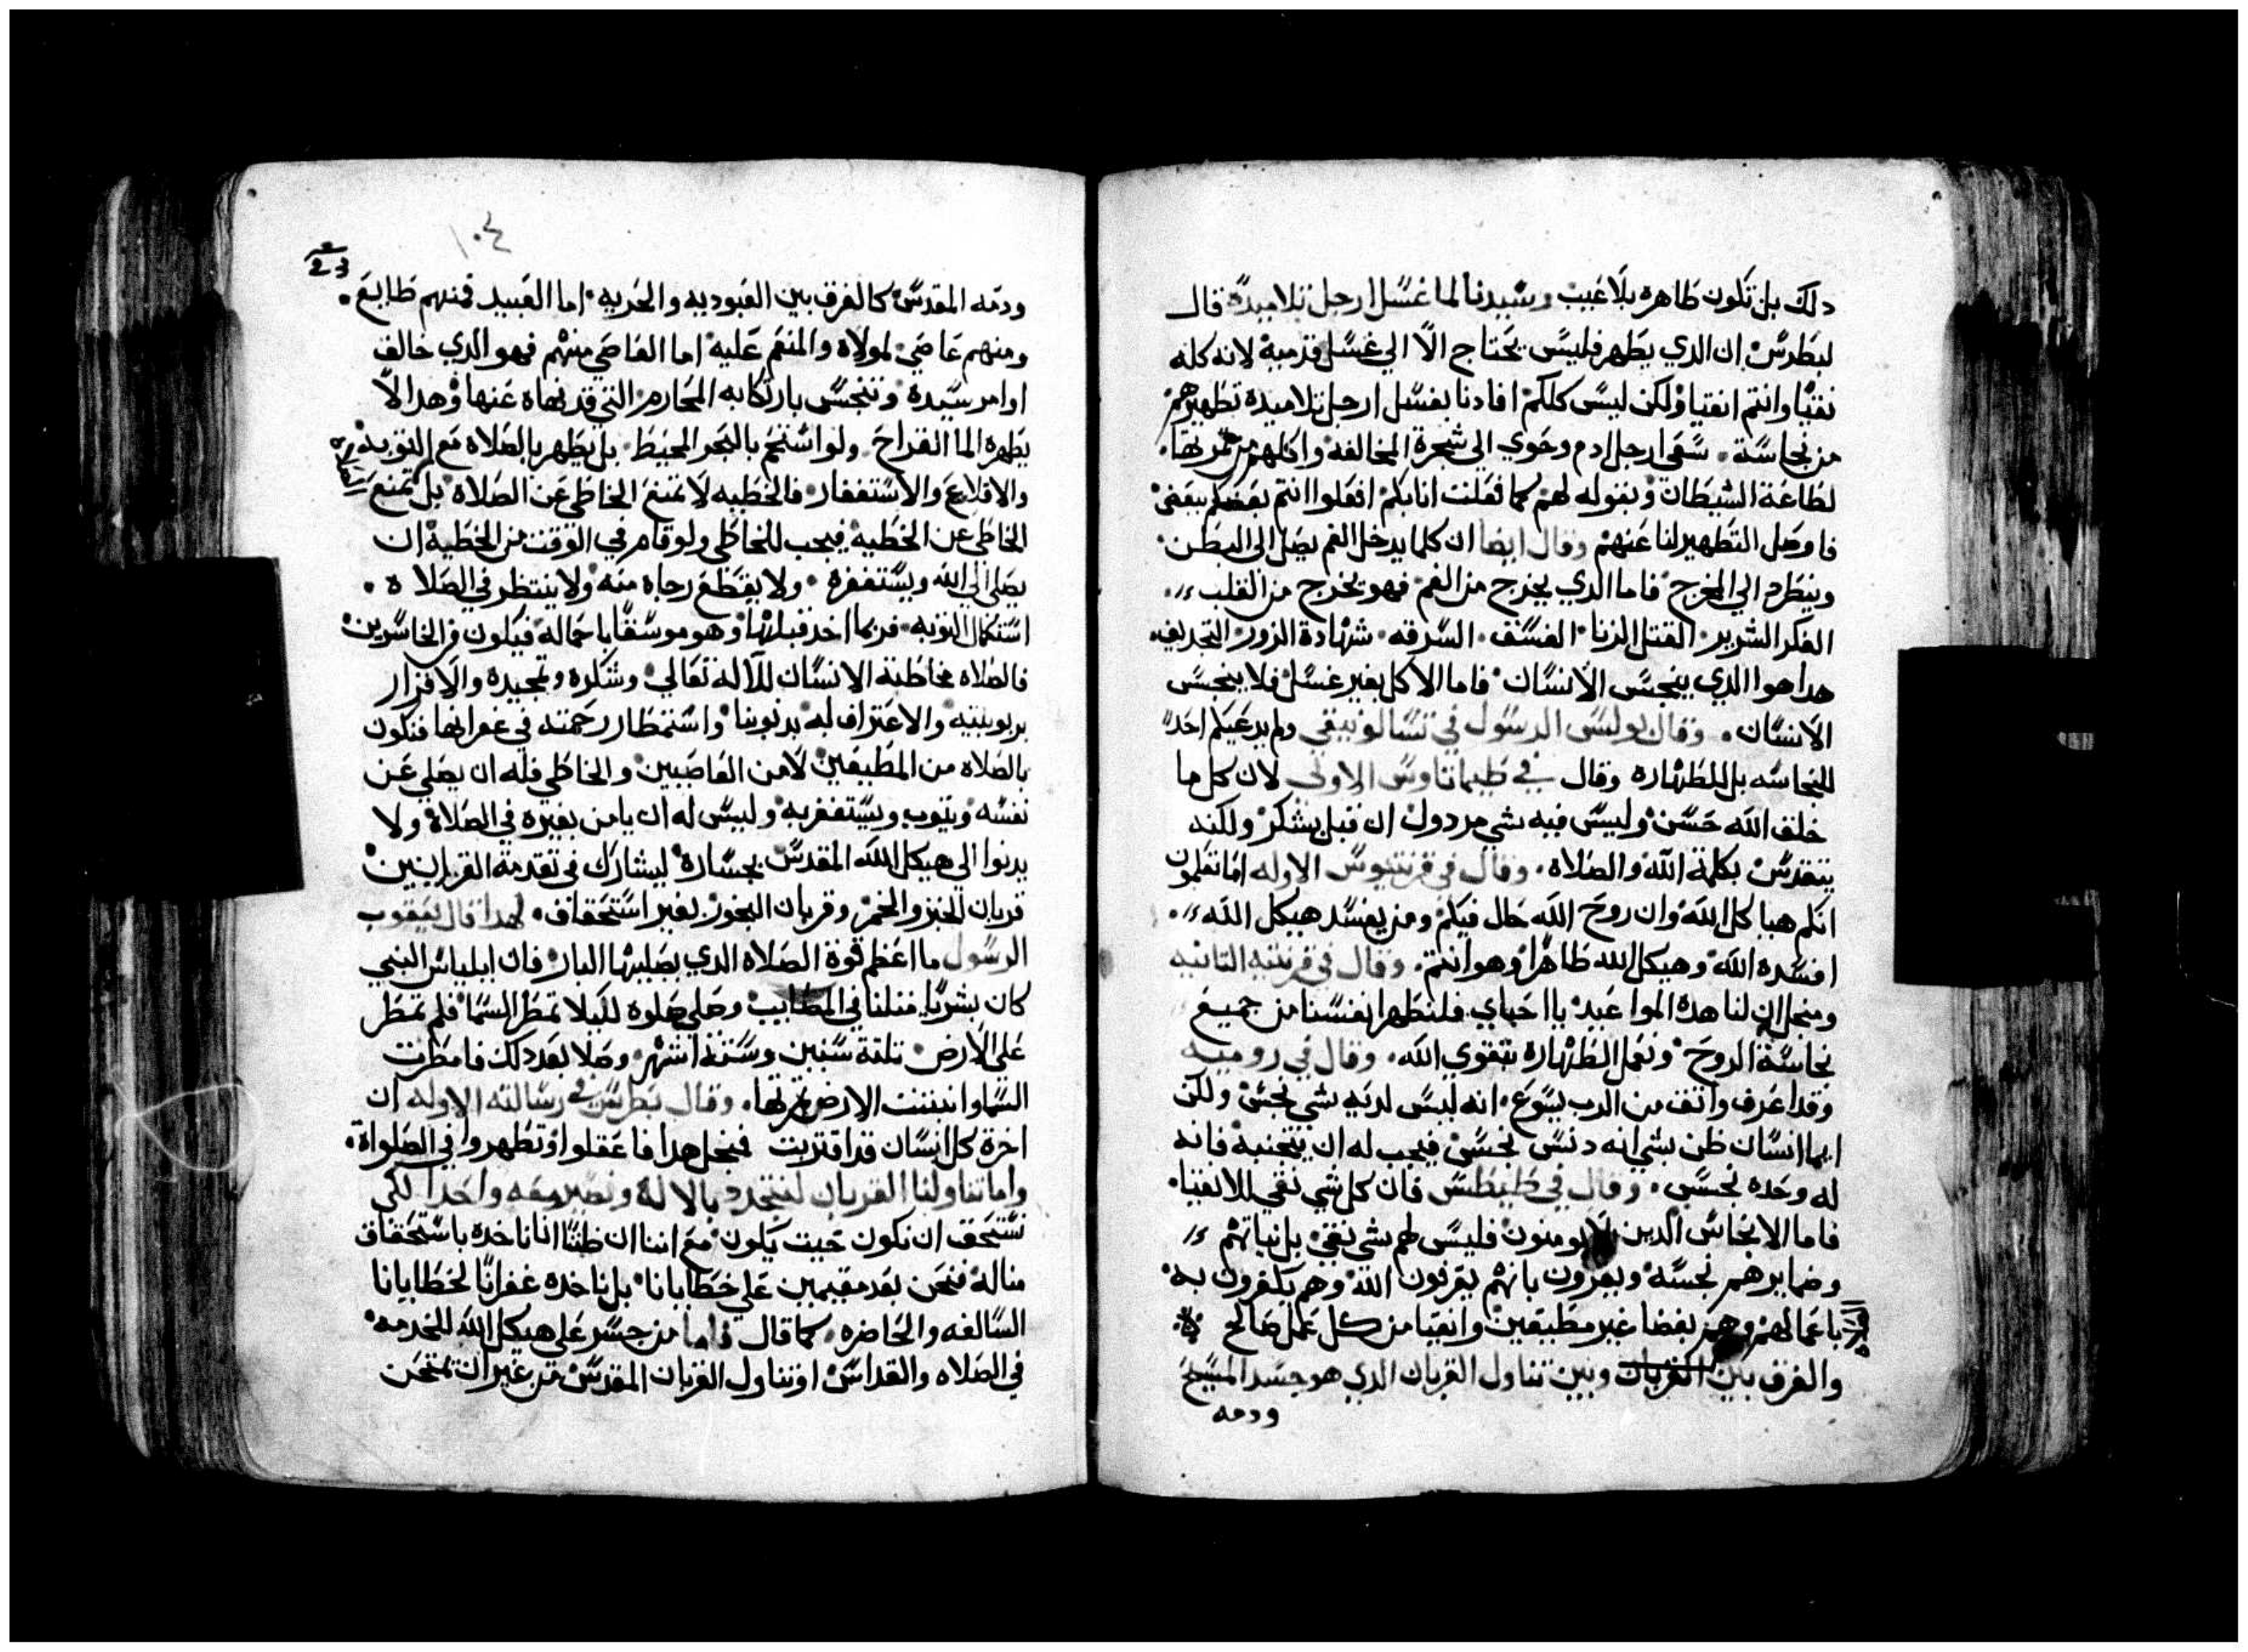 دلك بل تكون طاهره بلا عيب وسيدنا لما غسل ارجل تلاميده قال
لبطرس ان الدي يطهر فليس يحتاج الا الي غسل قدميه لانه كله
نقيا وانتم انقيا ولكن ليس كلكم افادنا بغسل ارجل تلاميده تطهيرهم
من نجاسة سعي ارجل ادم وحوي الي شجرة المخالفه واكلهم من تمرتها
لطاعة الشيطان وبقوله لهم كما فعلت انا بكم افعلوا انتم بعضكم ببعض
فاوصل التطهير لنا عنهم وقال ايضا ان كلما يدخل الفم يصل الي البطن
وينطرد الي المخرج فاما الدي يخرج من الفم فهو يخرج من القلب
الفكر الشرير القتل الزنا الفسق السرقه شهادة الزور التجديف
هدا هوا الدي ينجس الانسان فاما الاكل بغير غسل فلا ينجس
الانسان وقال بولس الرسول في تسالونيقي ولم يدعيكم احد
للنجاسه بل للطهاره وقال في طيماتاوس الاولي لان كل ما
خلق الله حسن وليس فيه شي مردول ان قبل بشكر ولكنه
يتقدس بكلمة الله والصلاه وقال في قرنتيوس الاوله اما تعلمون
انكم هياكل الله وان روح الله حال فيكم ومن يفسد هيكل الله
افسده الله وهيكل الله طاهرا وهو انتم وقال في قرنتيه التانيه
ومنجل ان لنا هده المواعيد يا احباي فلنطهر انفسنا من جميع
نجاسة الروح ونعمل الطهاره بتقوي الله وقال في روميه
وقد اعرف واتق من الرب يسوع انه ليس لديه شي نجس ولكن
ايما انسان ظن بشي انه دنس نجس فيجب له ان يتجنبه فانه
له وحده نجس وقال في طيطس فان كل شي نقي للانقيا
فاما الانجاس الدين لا يومنون فليس لهم شي نقي بل نياتهم
وضمايرهم نجسه ويقرون بانهم يعرفون الله وهم يكفرون به
باعمالهم وهم بغضا غير مطيعين وانقيا من كل عمل صالح
والفرق بين القربان وبين تناول القربان الدي هو جسد المسيح
ودمه
١٠٤
ودمه المقدس كالفرق بين العبوديه والحريه اما العبيد فمنهم طايع
ومنهم عاصي لمولاه والمنعم عليه اما العاصي منهم فهو الدي خالف
اوامر سيده وتنجس بارتكابه المحارم التي قد نهاه عنها وهدا لا
يطهره الما القراح ولو استحم بالبحر المحيط بل يطهر بالصلاه مع التوبه
والاقلاع والاستغفار فالخطيه لا تمنع الخاطي عن الصلاه بل تمنع
الخاطي عن الخطيه فيجب للخاطي ولو قام في الوقت من الخطية ان
يصلي الي الله ويستغفره ولا يقطع رجاه منه ولا ينتظر في الصلاه
استكمال التوبه فربما اخد قبلها وهو موسقا باحماله فيكون من الخاسرين
فالصلاه مخاطبة الانسان للاله تعالي وشكره وتمجيده والاقرار
بربوبيته والاعتراف له بدنوبنا واستمطار رحمته في غفرانها فنكون
بالصلاه من المطيعين لا من العاصيين والخاطي فله ان يصلي عن
نفسه ويتوب ويستغفر به وليس له ان يامن بغيره في الصلاة ولا
يدنوا الي هيكل الله المقدس بجساره ليشارك في تقدمة القرابين
قربان الخبز والخمر وقربان البخور بغير استحقاق لهدا قال يعقوب
الرسول ما اعظم قوة الصلاه الدي يصليها البار فان ايلياس النبي
كان بشريا متلنا في المصايب وصلي صلوه لكيلا تمطر السما فلم تمطر
علي الارض تلتة سنين وستة اشهر وصلا بعد دلك فامطرت
السما وانبتت الارض تمرتها وقال بطرس في رسالته الاوله ان
اخرة كل انسان قد اقتربت فمنجل هدا فاعقلوا وتطهروا في الصلواة
واما تناولنا القربان لنتحد بالاله ونصير معه واحدا لكي
نستحق ان نكون حيت يكون مع اننا ان ظننا اننا ناخده باستحقاق
مناله فنحن بعد مقيمين علي خطايانا بل ناخده غفرانا لخطايانا
السالفه والحاضره كما قال فاما من جسر علي هيكل الله للخدمه
في الصلاه والقداس او تناول القربان المقدس من غير ان تمتحن